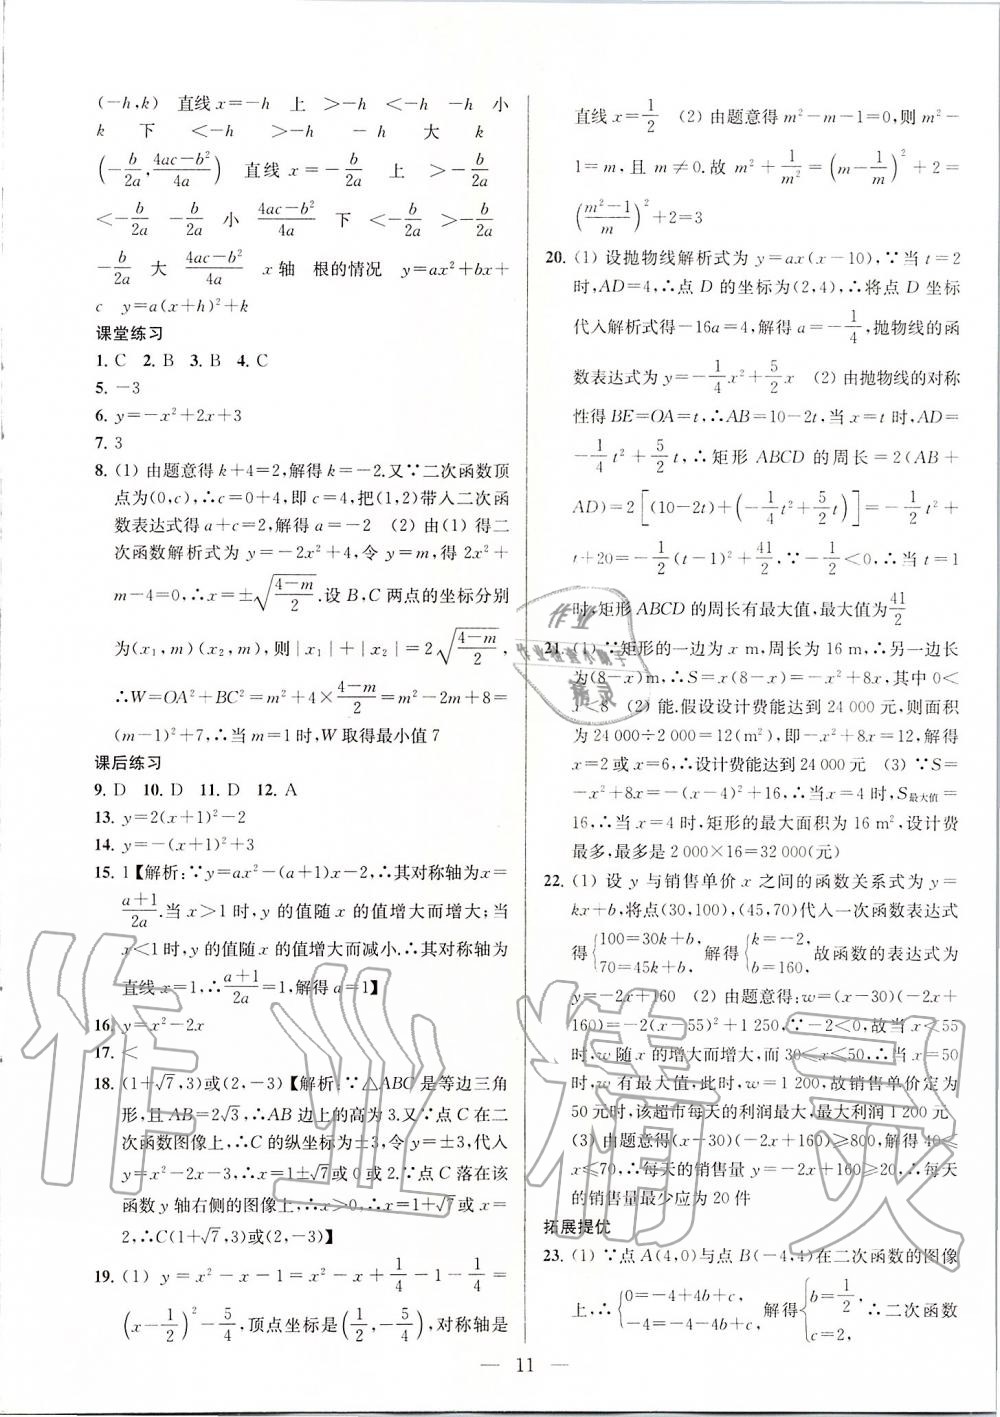 (−h,k)　直线 x=−h　上　>−h　<−h　−h　小
k　下　<−h　>−h　−h　大　k
(−b/2a, (4ac−b²)/4a)　直线 x=−b/2a　上　>−b/2a
<−b/2a　−b/2a　小　(4ac−b²)/4a　下　<−b/2a　>−b/2a
−b/2a　大　(4ac−b²)/4a　x 轴　根的情况　y=ax²+bx+
c　y=a(x+h)²+k
课堂练习
1. C　2. B　3. B　4. C
5. −3
6. y=−x²+2x+3
7. 3
8. (1) 由题意得 k+4=2,解得 k=−2.又∵二次函数顶
点为(0,c),∴c=0+4,即 c=4,把(1,2)带入二次函
数表达式得 a+c=2,解得 a=−2　(2) 由(1) 得二
次函数解析式为 y=−2x²+4,令 y=m,得 2x²+
m−4=0,∴x=±√((4−m)/2).设 B,C 两点的坐标分别
为(x₁,m)(x₂,m),则|x₁|+|x₂|=2√((4−m)/2),
∴W=OA²+BC²=m²+4×(4−m)/2=m²−2m+8=
(m−1)²+7,∴当 m=1时,W 取得最小值 7
课后练习
9. D　10. D　11. D　12. A
13. y=2(x+1)²−2
14. y=−(x+1)²+3
15. 1【解析:∵y=ax²−(a+1)x−2,∴其对称轴为x=
(a+1)/2a.当 x>1 时,y 的值随 x 的值增大而增大;当
x<1时,y 的值随 x 的值增大而减小.∴其对称轴为
直线 x=1,∴(a+1)/2a=1,解得 a=1】
16. y=x²−2x
17. <
18. (1+√7,3)或(2,−3)【解析:∵△ABC 是等边三角
形,且 AB=2√3,∴AB 边上的高为 3.又∵点 C 在二
次函数图像上,∴C 的纵坐标为±3,令 y=±3,代人
y=x²−2x−3,∴x=1±√7或 0或 2.∵点 C 落在该
函数 y 轴右侧的图像上,∴x>0,∴x=1+√7或 x=
2,∴C(1+√7,3)或(2,−3)】
19. (1) y=x²−x−1=x²−x+1/4−1−1/4=
(x−1/2)²−5/4,顶点坐标是(1/2,−5/4),对称轴是
直线 x=1/2　(2) 由题意得 m²−m−1=0,则 m²−
1=m,且 m≠0.故 m²+1/m²=(m−1/m)²+2=
((m²−1)/m)²+2=3
20. (1) 设抛物线解析式为 y=ax(x−10),∵当 t=2
时,AD=4,∴点 D 的坐标为(2,4),∴将点 D 坐标
代入解析式得−16a=4,解得 a=−1/4,抛物线的函
数表达式为 y=−1/4x²+5/2x　(2) 由抛物线的对称
性得 BE=OA=t,∴AB=10−2t,当 x=t 时,AD=
−1/4t²+5/2t,∴矩形 ABCD 的周长=2(AB+
AD)=2[(10−2t)+(−1/4t²+5/2t)]=−1/2t²+
t+20=−1/2(t−1)²+41/2,∵−1/2<0,∴当 t=1
时,矩形 ABCD 的周长有最大值,最大值为41/2
21. (1) ∵矩形的一边为 x m,周长为 16 m,∴另一边
长为(8−x)m,∴S=x(8−x)=−x²+8x,其中 0<
x<8　(2) 能.假设设计费能达到 24 000 元,则面积
为 24 000÷2 000=12(m²),即−x²+8x=12,解得
x=2 或 x=6,∴设计费能达到 24 000 元　(3) ∵S=
−x²+8x=−(x−4)²+16,∴当 x=4 时,S最大值=
16,∴当 x=4 时,矩形的最大面积为 16 m²,设计费
最多,最多是 2 000×16=32 000(元)
22. (1) 设 y 与销售单价 x 之间的函数关系式为 y=
kx+b,将点(30,100),(45,70)代人一次函数表达式
得{100=30k+b, 70=45k+b,　解得{k=−2, b=160,　故函数的表达式为
y=−2x+160　(2) 由题意得:w=(x−30)(−2x+
160)=−2(x−55)²+1 250,∵−2<0,故当 x<55
时,w 随 x 的增大而增大,而 30≤x≤50,∴当 x=50
时,w 有最大值,此时,w=1 200,故销售单价定为
50 元时,该超市每天的利润最大,最大利润1 200元
(3) 由题意得(x−30)(−2x+160)≥800,解得 40≤
x≤70,∴每天的销售量 y=−2x+160≥20,∴每天
的销售量最少应为 20 件
拓展提优
23. (1) ∵点 A(4,0)与点 B(−4,−4)在二次函数的图像
上,∴{0=−4+4b+c, −4=−4−4b+c,　解得{b=1/2, c=2,　∴二次函数
— 11 —
作业精灵